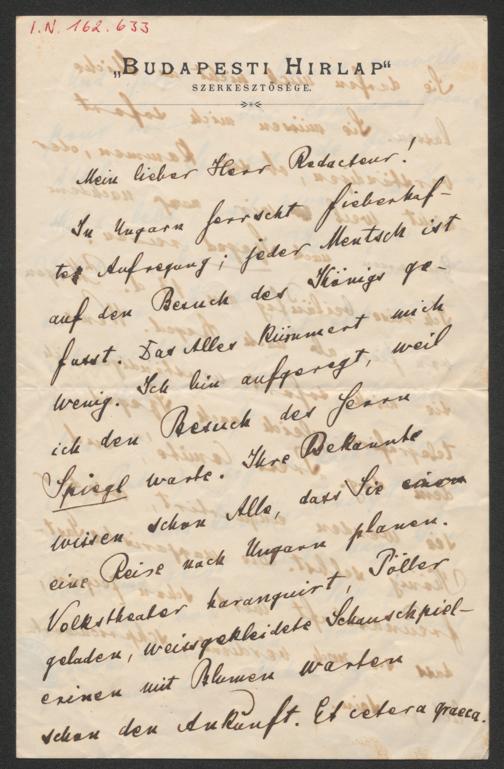 I.N. 162.633
„BUDAPESTI HIRLAP“
SZERKESZTŐSÉGE.
Mein lieber Herr Redacteur!
In Ungarn herrscht fieberhaf-
te Aufregung; jeder Mentsch ist
auf den Besuch des Königs ge-
fasst. Das Alles kümmert mich
wenig. Ich bin aufgeregt, weil
ich den Besuch des Herrn
Spiegl warte. Ihre Bekannte
wissen schon Alle, dass Sie
eine Reise nach Ungarn planen.
Volkstheater haranguirt, Pöller
geladen, weissgekleidete Schauschpiel-
erinen mit Blumen warten
schon den Ankunft. Et cetera graeca.